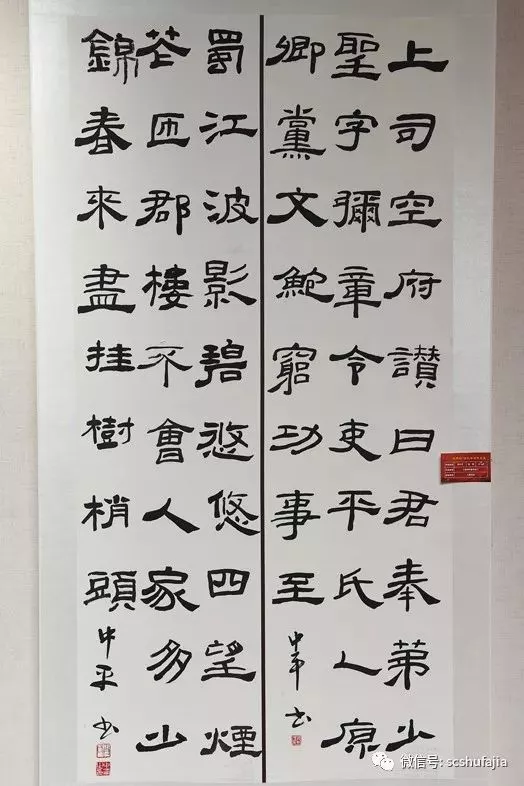 上司空府讚曰君奉第少
聖字彌章令吏平氏人原
卿黨文鮀窮功事至
中平 书
蜀江波影碧悠悠四望煙
花匝郡樓不會人家多少
錦春來盡挂樹梢頭
中平 书
微信号: scshufajia